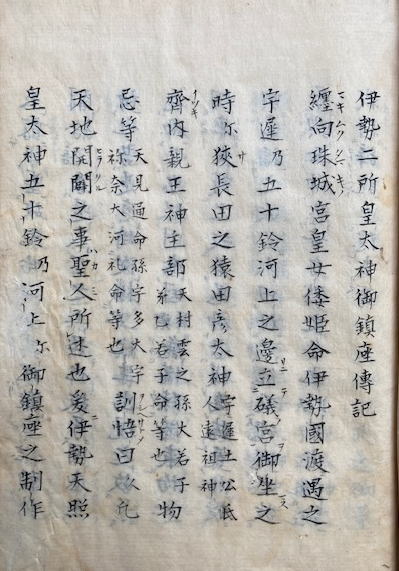 伊勢二所皇太神御鎮座傳記
纏向珠城宮皇女倭姫命伊勢國渡遇之
宇遲乃五十鈴河上之邊立礒宮御坐之
時尓狹長田之猿田彦太神宇遲土公氏人遠祖神
齊内親王神主部天村雲之孫大若子弟乙若子命等也物
忌等天見通命孫宇多大宇祢奈大河礼命等也訓悟曰久凡
天地開闢之事聖人所述也爰伊勢天照
皇太神五十鈴乃河上尓御鎮座之制作